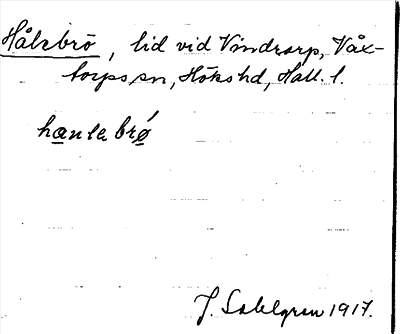 Hålebrö, lid vid Vindrarp, Våx-
torps sn, Höks hd, Hall. l.
hanlabrǿ
J. Sahlgren 1917.